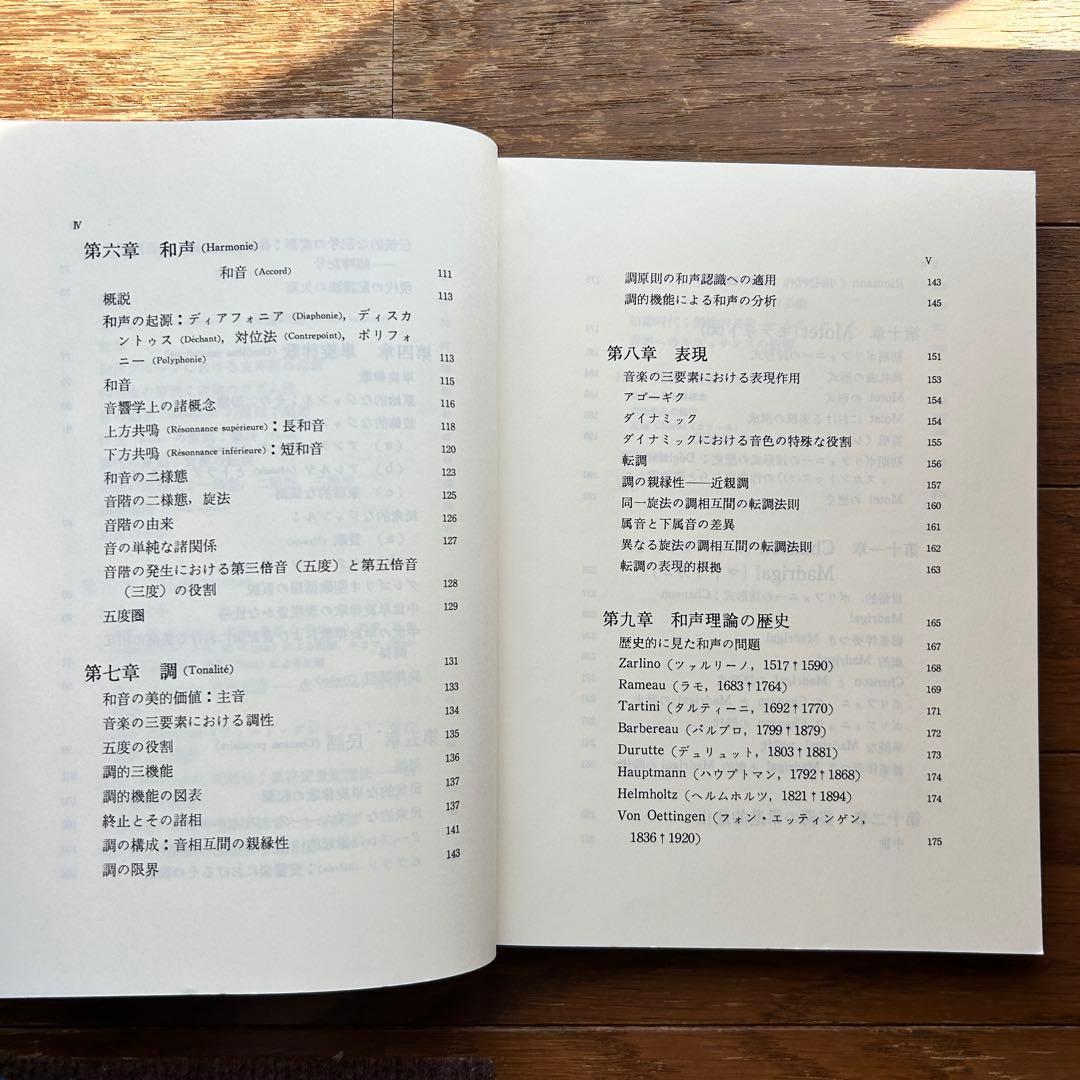 Ⅳ
第六章 和声 (Harmonie)
和音 (Accord) 111
概説 113
和声の起源:ディアフォニア (Diaphonie), ディスカ
ントゥス (Déchant), 対位法 (Contrepoint), ポリフォ
ニー (Polyphonie) 113
和音 115
音響学上の諸概念 116
上方共鳴 (Résonnance supérieure):長和音 118
下方共鳴 (Résonnance inférieure):短和音 120
和音の二様態 123
音階の二様態,旋法 125
音階の由来 126
音の単純な諸関係 127
音階の発生における第三倍音(五度)と第五倍音
(三度)の役割 128
五度圏 129
第七章 調 (Tonalité) 131
和音の美的価値:主音 133
音楽の三要素における調性 134
五度の役割 135
調的三機能 136
調的機能の図表 137
終止とその諸相 137
調の構成:音相互間の親縁性 141
調の限界 143
Ⅴ
調原則の和声認識への適用 143
調的機能による和声の分析 145
第八章 表現 151
音楽の三要素における表現作用 153
アゴーギク 154
ダイナミック 154
ダイナミックにおける音色の特殊な役割 155
転調 156
調の親縁性——近親調 157
同一旋法の調相互間の転調法則 160
属音と下属音の差異 161
異なる旋法の調相互間の転調法則 162
転調の表現的根拠 163
第九章 和声理論の歴史 165
歴史的に見た和声の問題 167
Zarlino (ツァルリーノ, 1517†1590) 168
Rameau (ラモ, 1683†1764) 169
Tartini (タルティーニ, 1692†1770) 171
Barbereau (バルブロ, 1799†1879) 172
Durutte (デュリュット, 1803†1881) 173
Hauptmann (ハウプトマン, 1792†1868) 174
Helmholtz (ヘルムホルツ, 1821†1894) 174
Von Oettingen (フォン・エッティンゲン,
1836†1920) 175